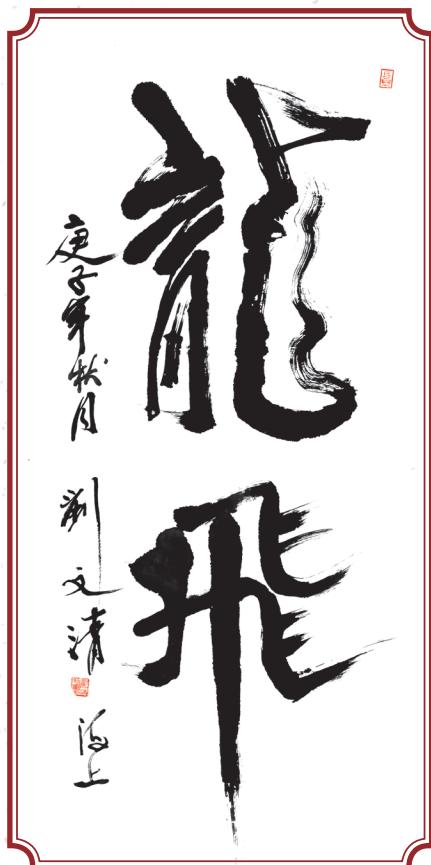 龍飛
庚子年秋月 劉文清 海上